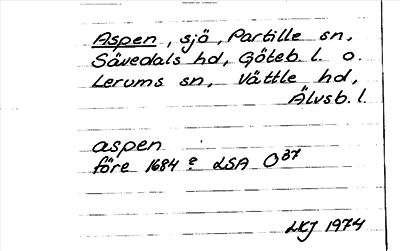 Aspen, sjö, Partille sn,
Sävedals hd, Göteb. l. o.
Lerums sn, Vättle hd,
Älvsb. l.
aspen
före 1684? LSA O37
LKJ 1974